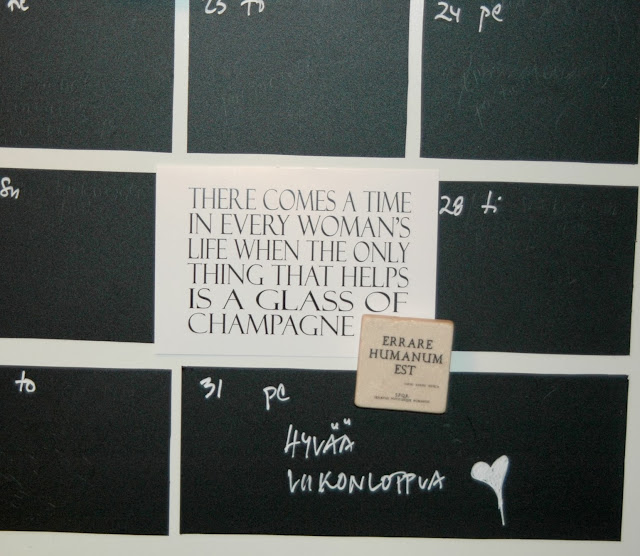 23 to
24 pe
su
THERE COMES A TIME
IN EVERY WOMAN'S
LIFE WHEN THE ONLY
THING THAT HELPS
IS A GLASS OF
CHAMPAGNE
28 ti
ERRARE
HUMANUM
EST
to
31 pe
HYVÄÄ
VIIKONLOPPUA